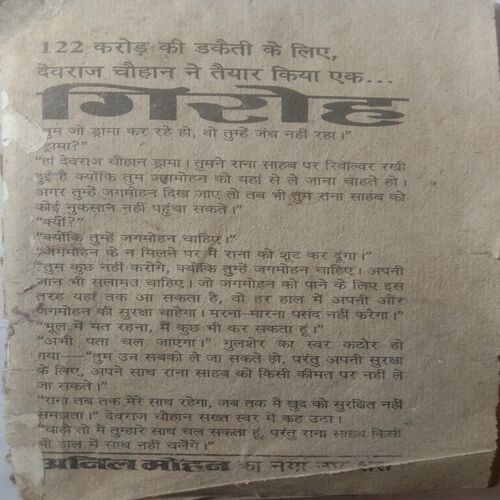 122 करोड़ की डकैती के लिए,
देवराज चौहान ने तैयार किया एक...
गिरोह
"तुम जो ड्रामा कर रहे हो, वो तुम्हें जंच नहीं रहा।"
ड्रामा?"
"हां देवराज चौहान ड्रामा। तुमने राना साहब पर रिवॉल्वर रखी
हुई है क्योंकि तुम जगमोहन को यहां से ले जाना चाहते हो।
अगर तुम्हें जगमोहन दिख जाए तो तब भी तुम राना साहब को
कोई नुकसान नहीं पहुंचा सकते।"
"क्यों?"
"क्योंकि तुम्हें जगमोहन चाहिए।"
"जगमोहन के न मिलने पर मैं राना को शूट कर दूंगा।"
"तुम कुछ नहीं करोगे, क्योंकि तुम्हें जगमोहन चाहिए। अपनी
जान भी सलामत चाहिए। जो जगमोहन को पाने के लिए इस
तरह यहां तक आ सकता है, वो हर हाल में अपनी और
जगमोहन की सुरक्षा चाहेगा। मरना-मारना पसंद नहीं करेगा।"
"भूल में मत रहना, मैं कुछ भी कर सकता हूं।"
"अभी पता चल जाएगा।" गुलशेर का स्वर कठोर हो
गया—"तुम उन सबको ले जा सकते हो, परंतु अपनी सुरक्षा
के लिए, अपने साथ राना साहब को किसी कीमत पर नहीं ले
जा सकते।"
"राना तब तक मेरे साथ रहेगा, जब तक मैं खुद को सुरक्षित नहीं
समझता।" देवराज चौहान सख्त स्वर में कह उठा।
"चाहो तो मैं तुम्हारे साथ चल सकता हूं, परंतु राना साहब किसी
भी हाल में साथ नहीं चलेंगे।"
अनिल मोहन का नया